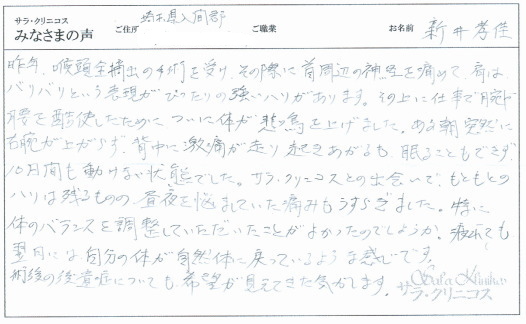 サラ・クリニコス
みなさまの声
ご住所 埼玉県入間郡 ご職業 お名前 新井孝佳
昨年、喉頭全摘出の手術を受け、その際に首周辺の神経を痛めて、肩は
バリバリという表現がぴったりの強いハリがあります。その上に仕事で腕や
腰を酷使したためについに体が悲鳴を上げました。ある朝突然に
右腕が上がらず、背中に激痛が走り起きあがるも、眠ることもできず、
10日間も動けない状態でした。サラ・クリニコスとの出会いで、もともとの
ハリは残るものの、昼夜を悩ましていた痛みもうすらぎました。特に
体のバランスを調整していただいたことがよかったのでしょうか、疲れても
翌日には、自分の体が自然体に戻っているような感じです。
術後の後遺症についても、希望が見えてきた気がします。
サラ・クリニコス